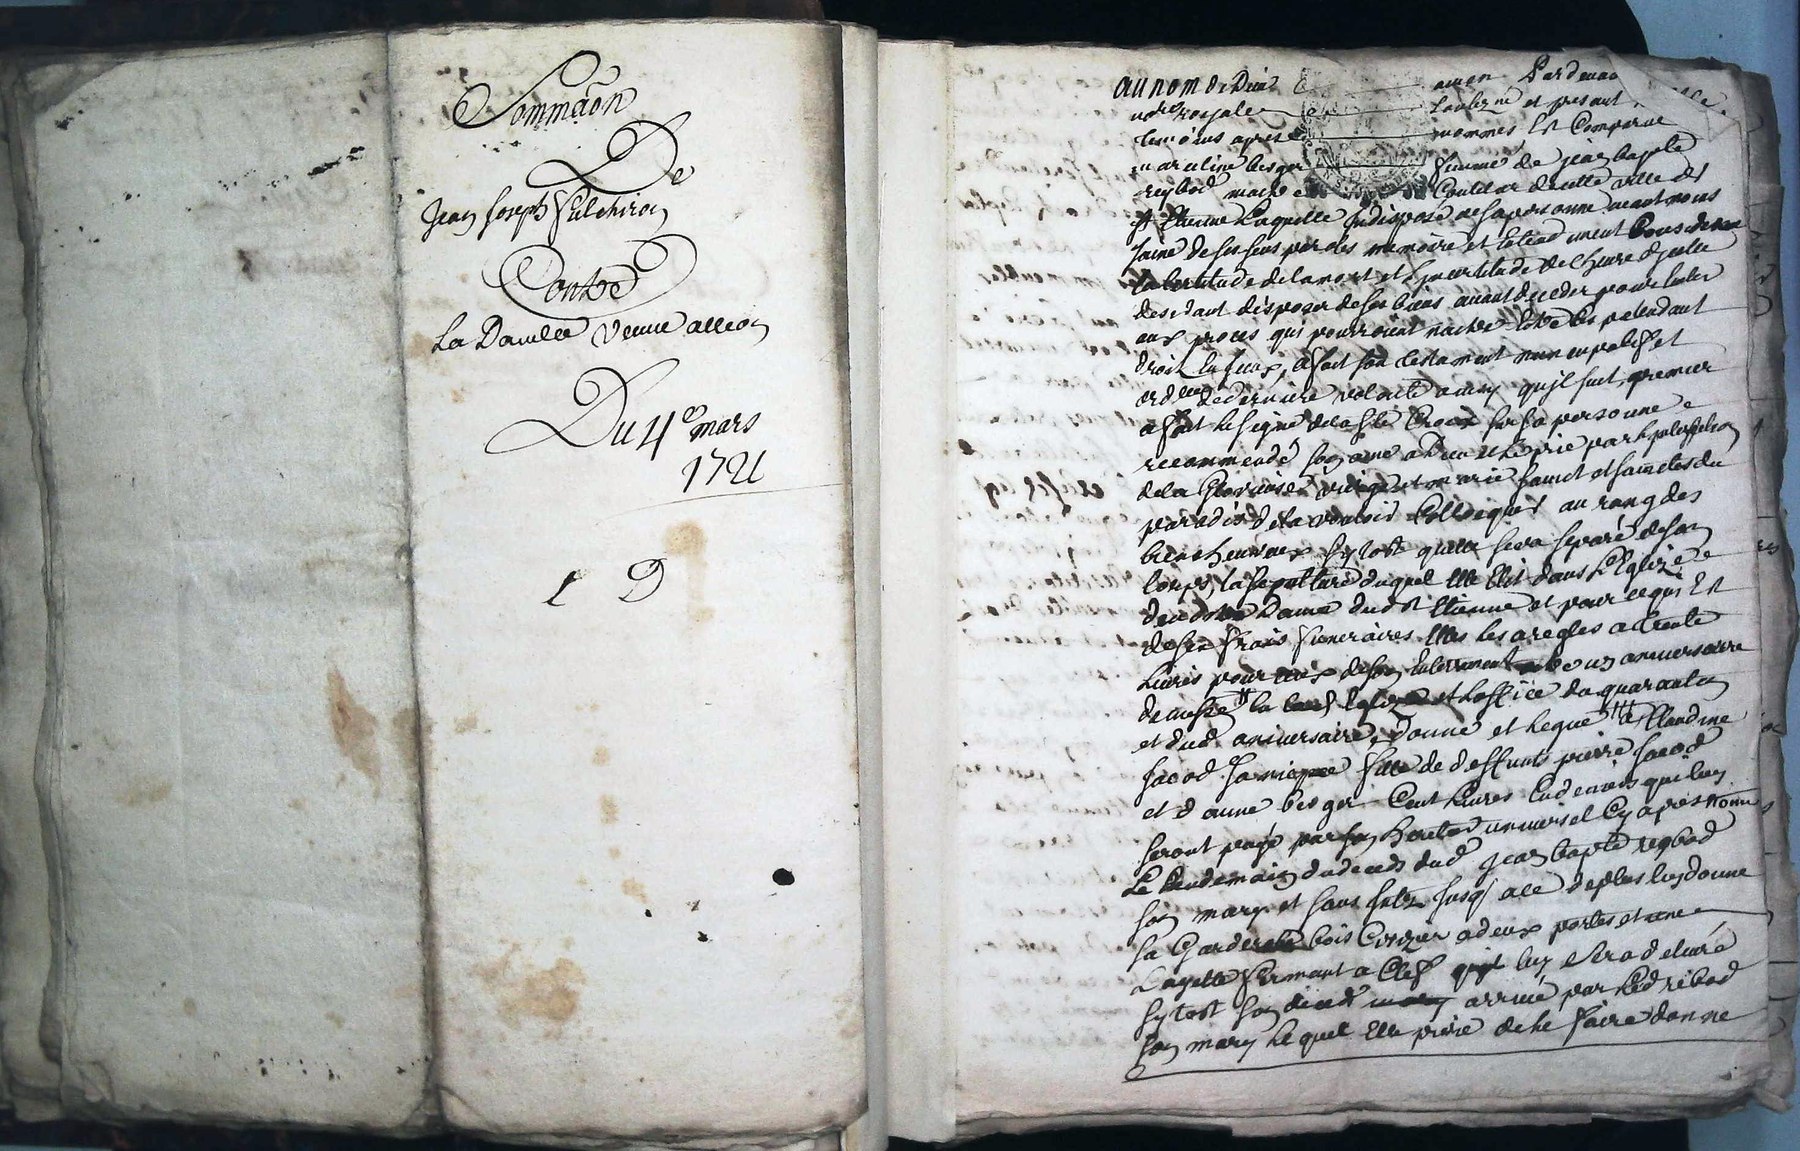 Sommaõn
De
Jean Joseph fulchiron
Contre
La Damlle veuve alleon
Du 4e mars
1721
au nom de Dieu amen Pardevan
nore royale soubzne et presant
temoins apres nommes Est Comparue
femme de jean baptte
reybod de cette ville de
st Etienne Laquelle Indisposé de sa personne neantmoins
saine de ses sens parolles memoire et Entendement
la Certitude de la mort et Lincertitude de lheure dJcelle
desirant disposer de ses biens avant deceder pour Eviter
aux proces qui pourroient naitre Entre les pretendant
droit En Iceux, a fait son testament nuncupatif et
ordce de derniere volonté ainsy qujl suit, premier
a fait le signe de la ste Croix sur sa personne
recommendé son ame a Dieu Et le prie par Lintercession
de la Glorieuse vierge marie sainct et sainctes du
paradis de la vouloir Colloquer au rang des
bienheureux sytost quelle sera separé de son
Corps, la sepulture duquel Elle Elit dans LEglize
de nostre Dame dudt st Etienne et pour ce qui Est
de ses frais funeraires Elle les a regles a trente
Livres pour de son Enterrement un aniversaire
de messe et Loffice de quarantin
et dud. aniversaire, Donne et Legue a Claudine
Jacod sa niepce fille de deffunts pierre Jacod
et danne berger Cent Livres En deniers qui luy
seront payé par son heretier universel Cy apres nomé
Le Lendemain du deceds dud Jean baptte reybod
son mary et sans Intz jusqJ a ce de plus luy donne
sa Garderobe bois Cerizier a deux portes et une
Layette fermant a Clef quj luy sera delivré
sytost son deceds arrivé par Led reibod
son mary Lequel Elle prie de le faire donne